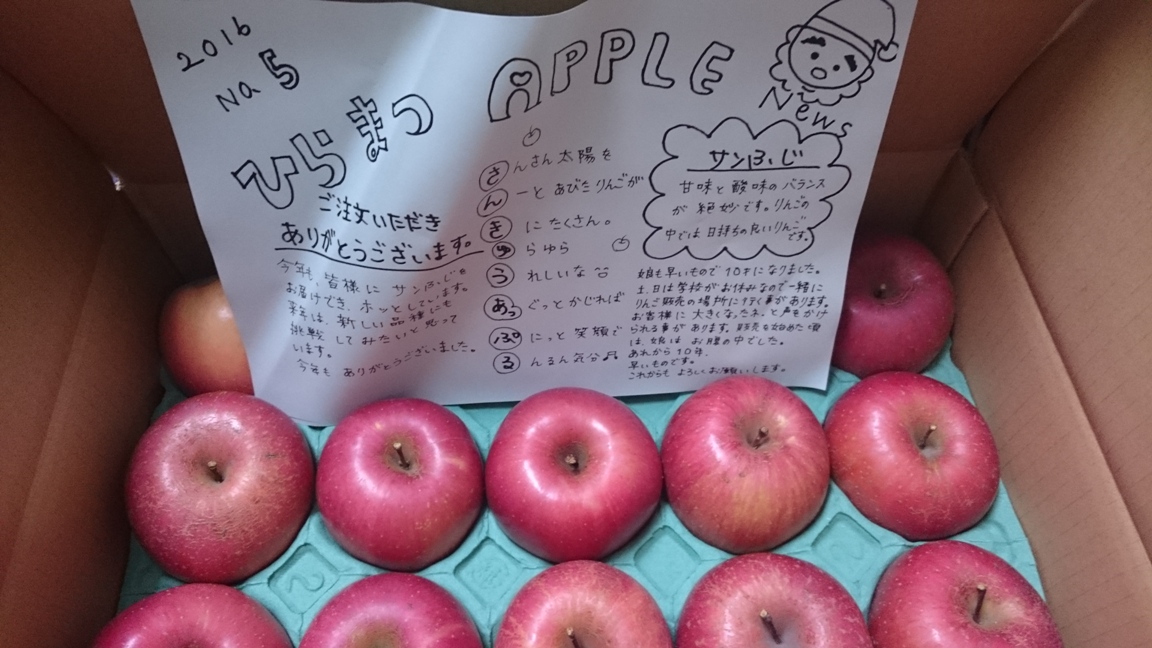 2016
No 5
ひらまつ
APPLE
News
ご注文いただき
ありがとうございます。
今年も、皆様に サンふじを
お届けでき、ホッとしています。
来年は、新しい品種にも
挑戦 してみたいと思って
います。
今年も ありがとうございました。
さんさん太陽を
んーとあびたりんごが
きにたくさん。
ゆらゆら
うれしいな
あっぐっとかじれば
ぷにっと笑顔で
るんるん気分♫
サンふじ
甘味と酸味のバランス
が絶妙です。りんごの
中では日持ちの良いりんご
です。
娘も早いもので10才になりました。
土、日は学校がお休みなので一緒に
りんご販売の場所に行く事があります。
お客様に 大きくなったネ。と声をかけ
られる事があります。販売を始めた頃
は、娘は お腹の中でした。
あれから10年。
早いものです。
これからも よろしくお願いします。